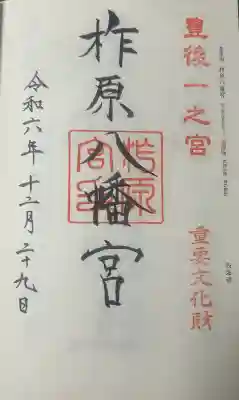 豊後一之宮
重要文化財
柞原八幡宮
令和六年十二月二十九日